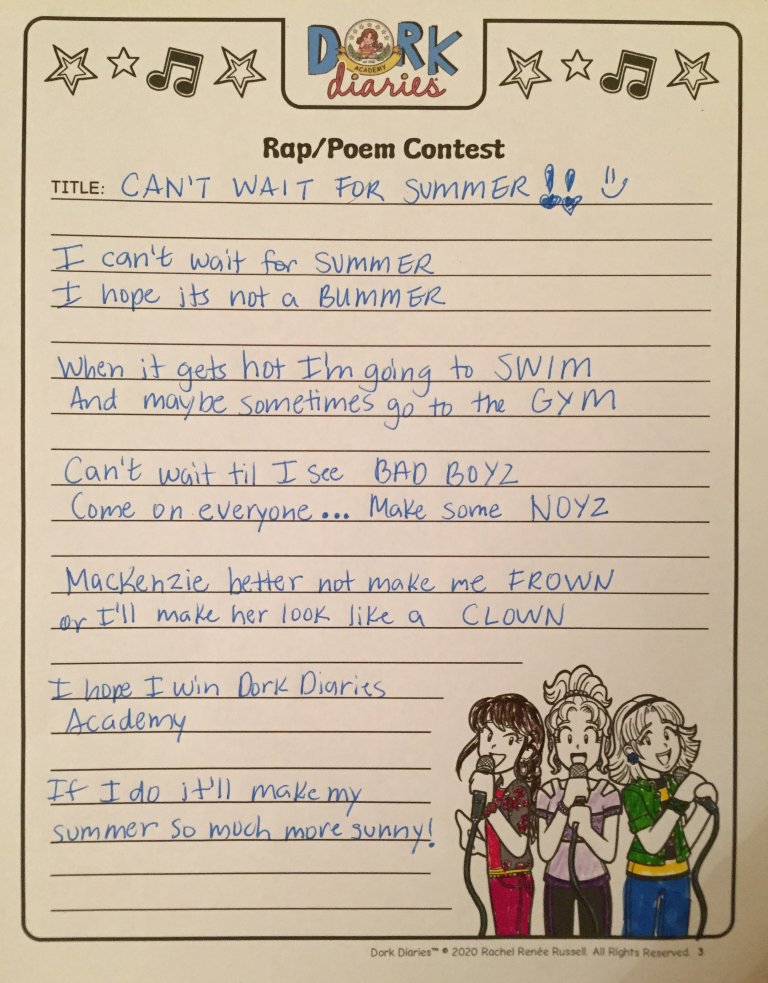 DORK
ACADEMY
diaries
Rap/Poem Contest
TITLE: CAN'T WAIT FOR SUMMER!! 
I can't wait for SUMMER
I hope its not a BUMMER
When it gets hot I'm going to SWIM
And maybe sometimes go to the GYM
Can't wait til I see BAD BOYZ
Come on everyone... Make some NOYZ
MacKenzie better not make me FROWN
or I'll make her look like a CLOWN
I hope I win Dork Diaries
Academy
If I do it'll make my
summer so much more sunny!
Dork Diaries™ © 2020 Rachel Renée Russell. All Rights Reserved. 3